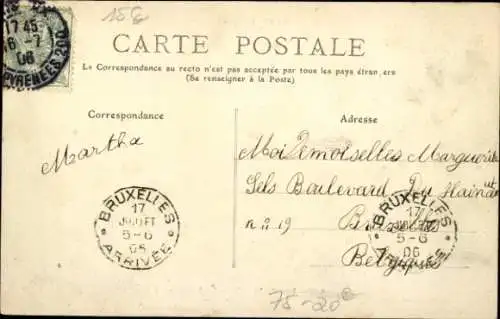 15€
17 45
6 - 7
06
PYRENEES
CARTE POSTALE
La Correspondance au recto n'est pas acceptée par tous les pays étrangers
(Se renseigner à la Poste)
Correspondance
Adresse
Martha
MoiDemoiselles
Gels Boulevard Du Hainaut
n ù 19 Bruxelles
Belgique
BRUXELLES
17
JUILLET
5-6
06
ARRIVÉE
BRUXELLES
17
5-6
06
75-20